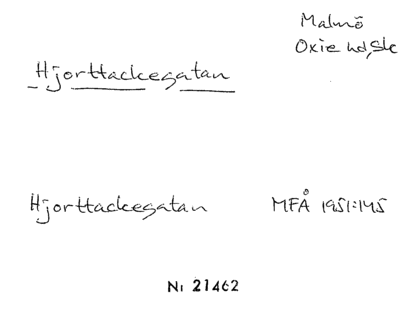 Malmö
Oxie hd, Sk
Hjorttackegatan
Hjorttackegatan MFÅ 1951:145
Nr 21462